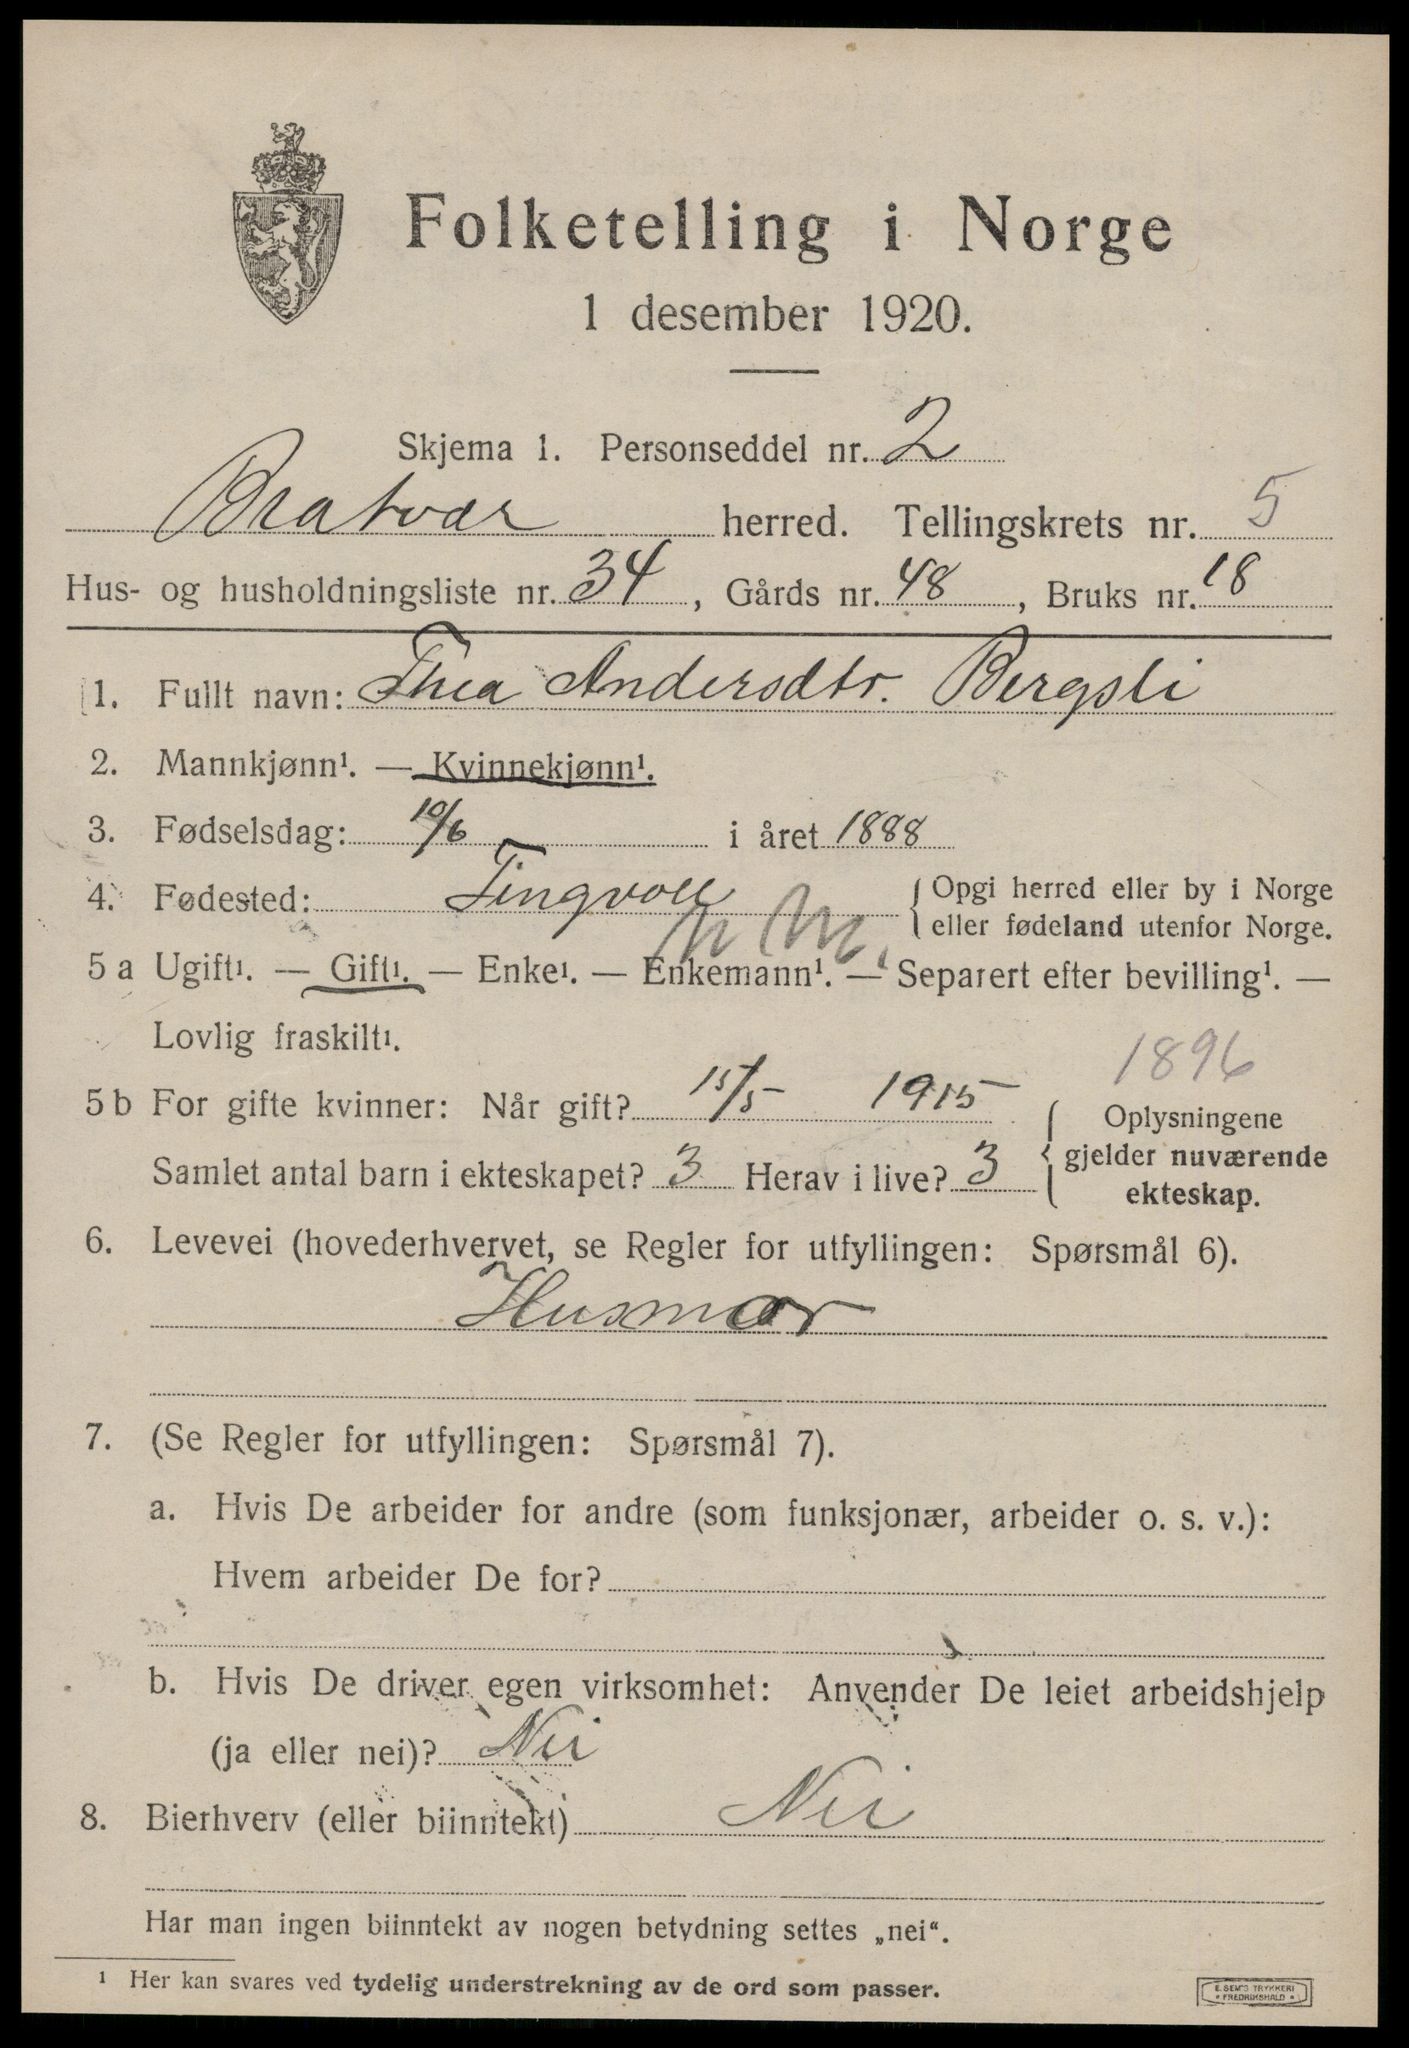 Folketelling i Norge
1 desember 1920.
Skjema 1. Personseddel nr. 2
Bratvær herred. Tellingskrets nr. 5
Hus- og husholdningsliste nr. 34, Gårds nr. 48, Bruks nr. 18
1. Fullt navn: Thea Andersdtr. Bergsli
2. Mannkjønn¹. — Kvinnekjønn¹.
3. Fødselsdag: 10/6 i året 1888
4. Fødested: Tingvoll { Opgi herred eller by i Norge
eller fødeland utenfor Norge.
N M.
5 a Ugift¹. — Gift¹. — Enke¹. — Enkemann¹. — Separert efter bevilling¹. —
Lovlig fraskilt¹.
1896
5 b For gifte kvinner: Når gift? 15/5 1915 { Oplysningene
gjelder nuværende
ekteskap.
Samlet antal barn i ekteskapet? 3 Herav i live? 3
6. Levevei (hovederhvervet, se Regler for utfyllingen: Spørsmål 6).
Husmor
7. (Se Regler for utfyllingen: Spørsmål 7).
a. Hvis De arbeider for andre (som funksjonær, arbeider o. s. v.):
Hvem arbeider De for?
b. Hvis De driver egen virksomhet: Anvender De leiet arbeidshjelp
(ja eller nei)? Nei
8. Bierhverv (eller biinntekt) Nei
Har man ingen biinntekt av nogen betydning settes „nei“.
¹ Her kan svares ved tydelig understrekning av de ord som passer.
E. SEM'S TRYKKERI
* FREDRIKSHALD *